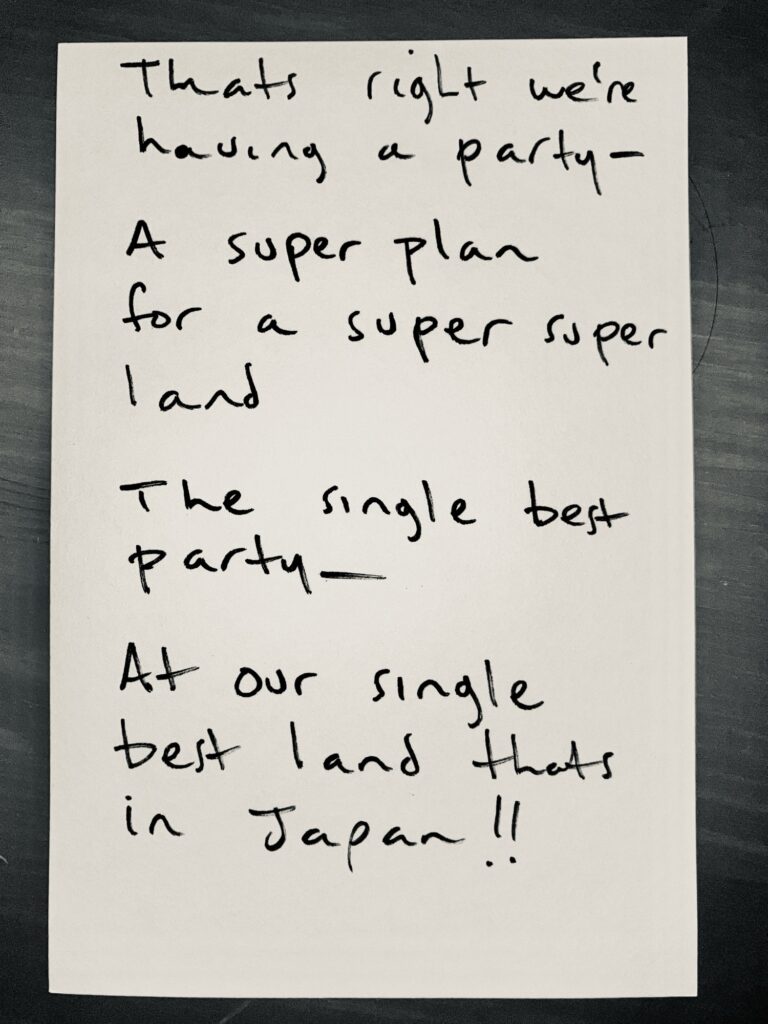 Thats right we're
having a party-
A super plan
for a super super
land
The single best
party_
At our single
best land thats
in Japan!!